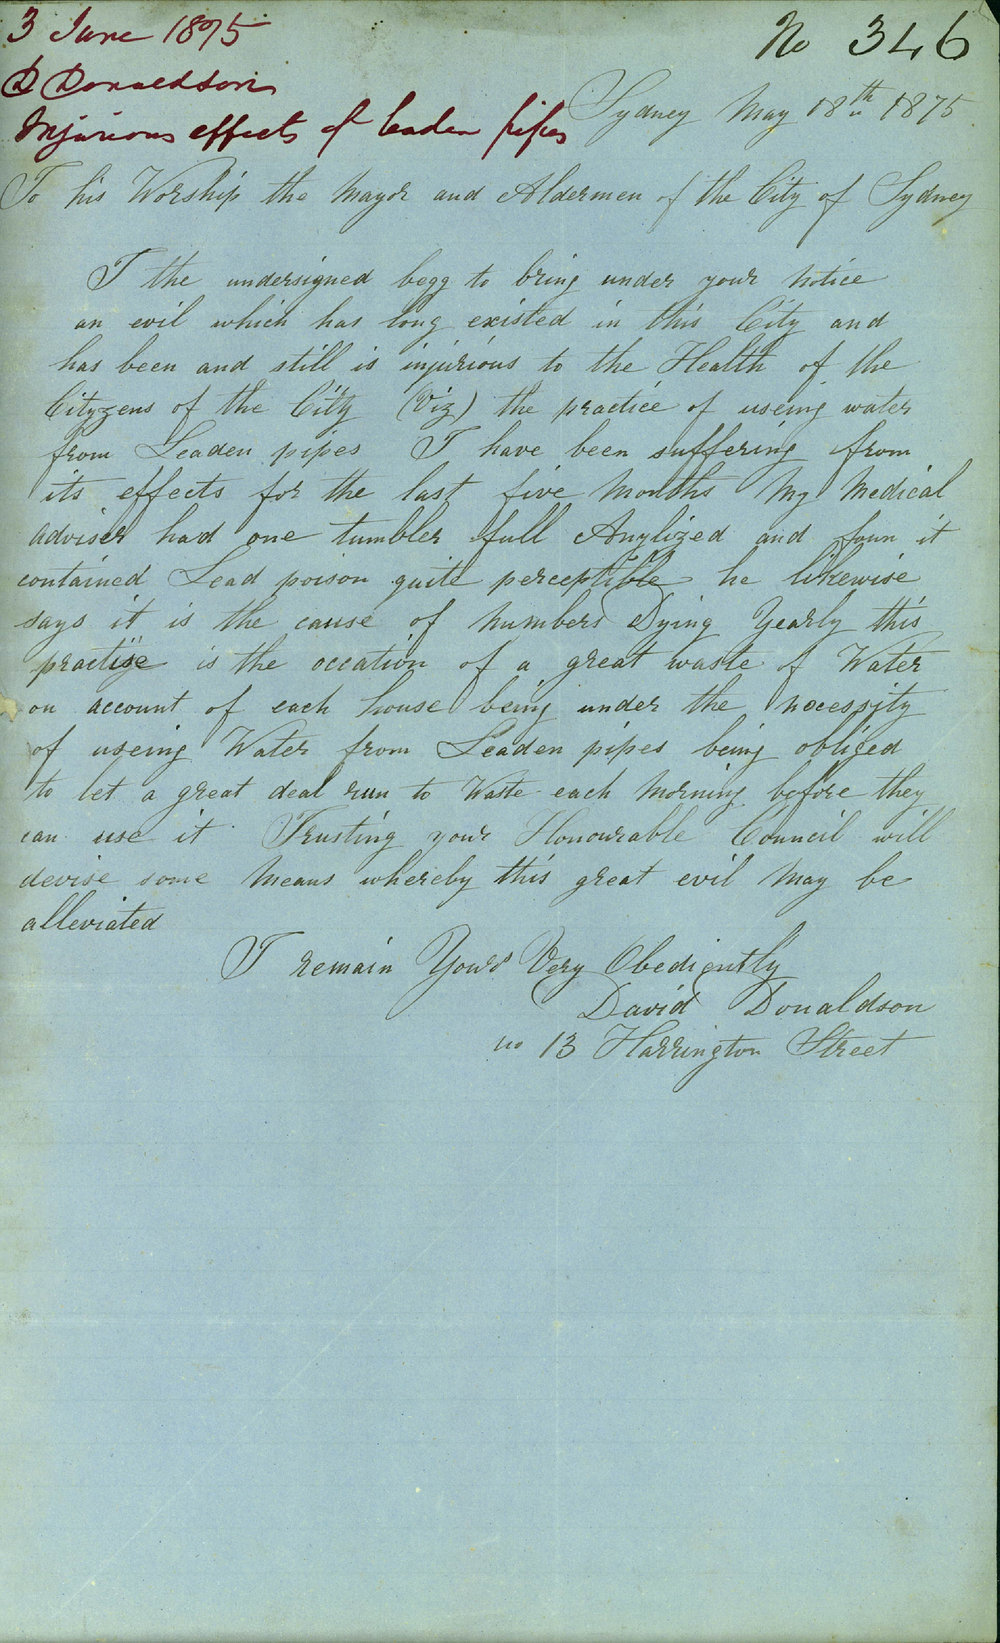 3 June 1875
No 346
D Donaldson
Injurious effects of leaden pipes
Sydney May 18th 1875
To his Worship the Mayor and Aldermen of the City of Sydney
I the undersigned begg to bring under your notice
an evil which has long existed in this City and
has been and still is injurious to the Health of the
Cityzens of the City (Viz) the practice of useing water
from Leaden pipes I have been suffering from
its effects for the last five Months My Medical
adviser had one tumbler full Anylized and foun it
contained Lead poison quite perceptible he likewise
says it is the cause of numbers Dying Yearly this
practise is the occation of a great waste of Water
on account of each house being under the necessity
of useing Water from Leaden pipes being obliged
to let a great deal run to Waste each Morning before they
can use it Trusting your Honourable Council will
devise some Means whereby this great evil May be
alleviated
I remain Yours Very Obediently
David Donaldson
no 13 Harrington Street